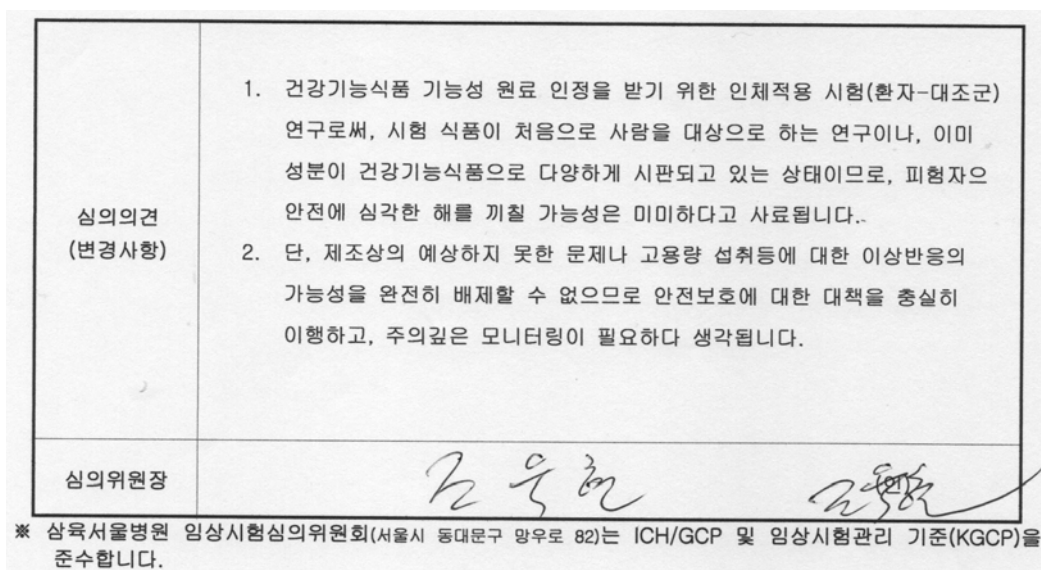 1. 건강기능식품 기능성 원료 인정을 받기 위한 인체적용 시험(환자-대조군)
연구로써, 시험 식품이 처음으로 사람을 대상으로 하는 연구이나, 이미
성분이 건강기능식품으로 다양하게 시판되고 있는 상태이므로, 피험자으
안전에 심각한 해를 끼칠 가능성은 미미하다고 사료됩니다.
심의의견
(변경사항)
2. 단, 제조상의 예상하지 못한 문제나 고용량 섭취등에 대한 이상반응의
가능성을 완전히 배제할 수 없으므로 안전보호에 대한 대책을 충실히
이행하고, 주의깊은 모니터링이 필요하다 생각됩니다.
심의위원장
※ 삼육서울병원 임상시험심의위원회(서울시 동대문구 망우로 82)는 ICH/GCP 및 임상시험관리 기준(KGCP)을
준수합니다.